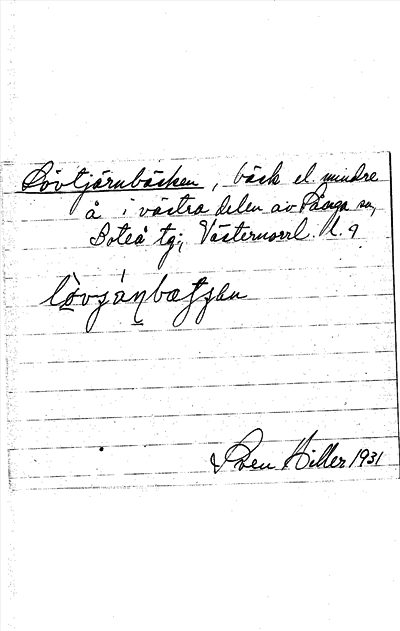 Lövtjärnbäcken, bäck el. mindre
å i västra delen av Långa sn,
Boteå tg; Västernorrl. l.
Sven Hiller 1931